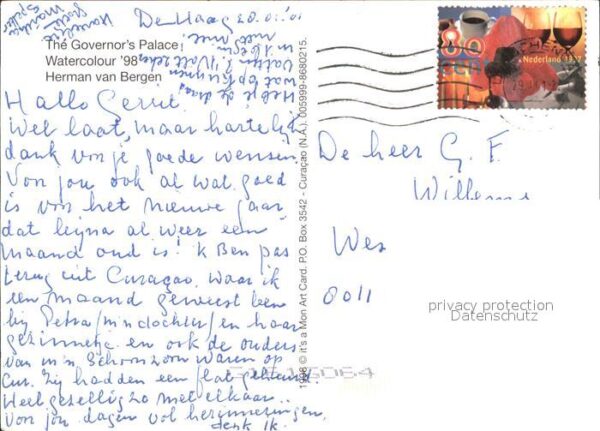 Den Haag 28.01.'01
The Governor's Palace
Watercolour '98
Herman van Bergen
Hallo Gerrit.
Wel laat, maar hartelijk
dank voor je goede wensen.
Voor jou ook al wat goed
is voor het nieuwe jaar
dat bijna al weer een
maand oud is! 'k Ben pas
terug uit Curaçao. Waar ik
een maand geweest ben
bij Petra/m'n dochter/en haar
gezinnetje en ook de ouders
van m'n schoonzoon waren op
Cur. Zij hadden een flat gehuurd.
Heel gezellig zo met elkaar..
Voor jou dagen vol herinneringen,
denk ik.
1998 © it's a Mon Art Card. P.O. Box 3542 - Curaçao (N.A.) 005999-8680215.
80
cent
Nederland 1997
De heer G. F.
Willems
Wes
8011
privacy protection
Datenschutz